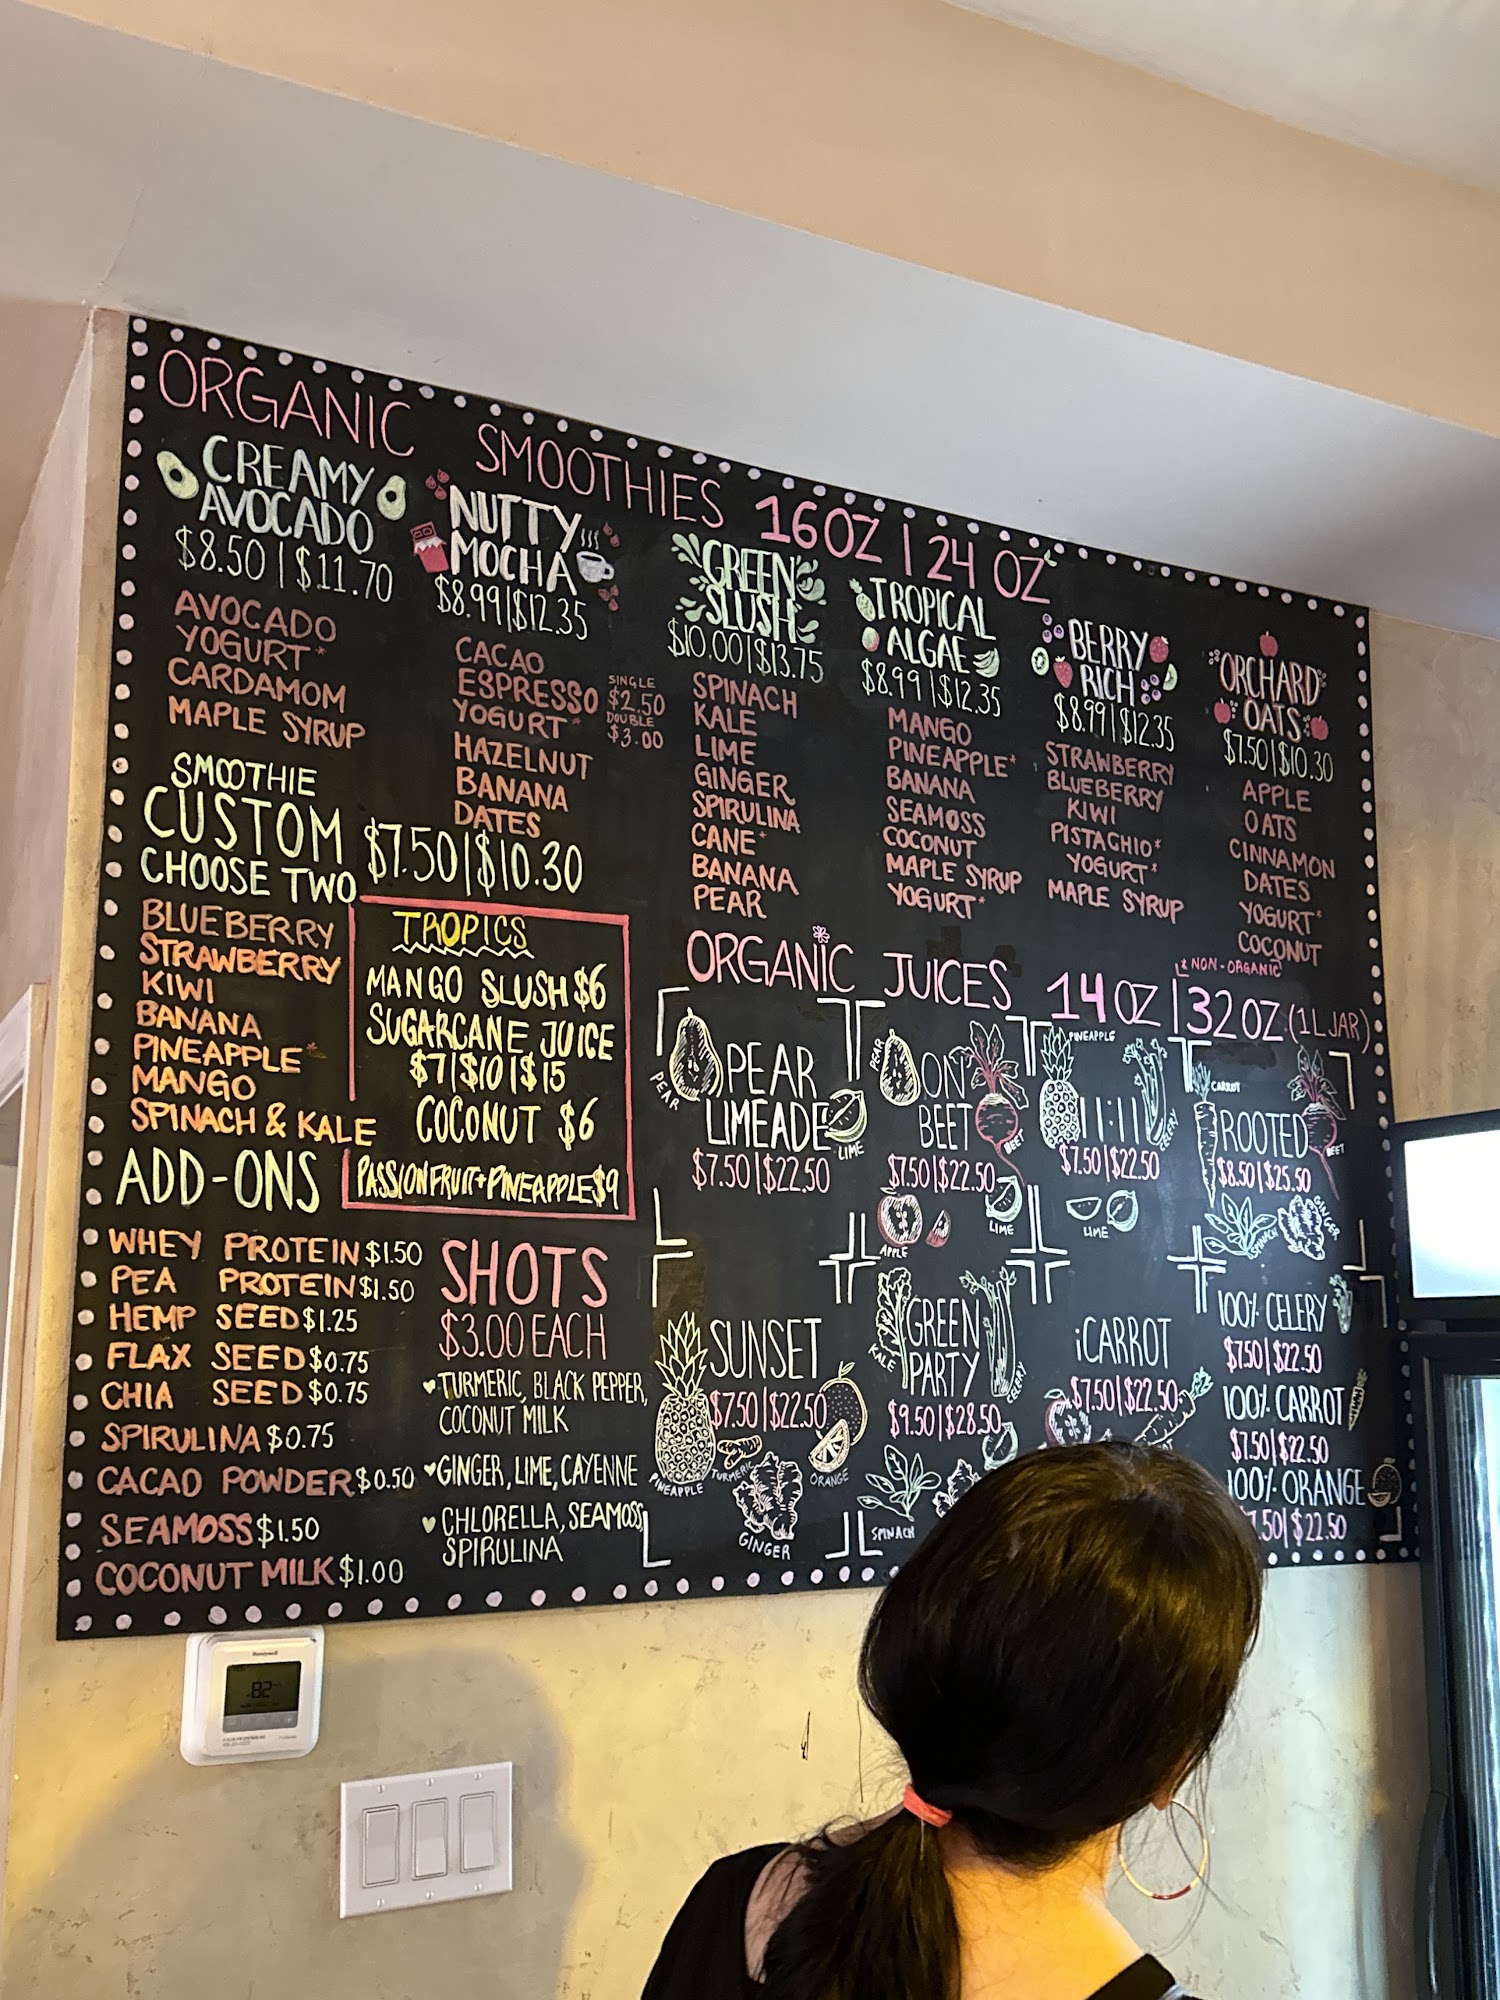 ORGANIC SMOOTHIES 16OZ | 24 OZ
CREAMY
AVOCADO
$8.50 | $11.70
AVOCADO
YOGURT*
CARDAMOM
MAPLE SYRUP
NUTTY
MOCHA
$8.99|$12.35
CACAO
ESPRESSO
SINGLE
$2.50
DOUBLE
$3.00
YOGURT*
HAZELNUT
BANANA
DATES
GREEN
SLUSH
$10.00|$13.75
SPINACH
KALE
LIME
GINGER
SPIRULINA
CANE*
BANANA
PEAR
TROPICAL
ALGAE
$8.99|$12.35
MANGO
PINEAPPLE*
BANANA
SEAMOSS
COCONUT
MAPLE SYRUP
YOGURT*
BERRY
RICH
$8.99|$12.35
STRAWBERRY
BLUEBERRY
KIWI
PISTACHIO*
YOGURT*
MAPLE SYRUP
ORCHARD
OATS
$7.50|$10.30
APPLE
OATS
CINNAMON
DATES
YOGURT*
COCONUT
* NON-ORGANIC
SMOOTHIE
CUSTOM $7.50|$10.30
CHOOSE TWO
BLUEBERRY
STRAWBERRY
KIWI
BANANA
PINEAPPLE*
MANGO
SPINACH & KALE
TROPICS
MANGO SLUSH $6
SUGARCANE JUICE
$7|$10|$15
COCONUT $6
PASSIONFRUIT+PINEAPPLE$9
ADD-ONS
WHEY PROTEIN $1.50
PEA PROTEIN $1.50
HEMP SEED $1.25
FLAX SEED $0.75
CHIA SEED $0.75
SPIRULINA $0.75
CACAO POWDER $0.50
SEAMOSS $1.50
COCONUT MILK $1.00
SHOTS
$3.00 EACH
TURMERIC, BLACK PEPPER,
COCONUT MILK
GINGER, LIME, CAYENNE
CHLORELLA, SEAMOSS,
SPIRULINA
ORGANIC JUICES 14OZ | 32OZ (1L JAR)
PEAR
LIMEADE
$7.50|$22.50
PEAR
LIME
ON
BEET
$7.50|$22.50
PEAR
BEET
APPLE
LIME
11:11
$7.50|$22.50
PINEAPPLE
CELERY
LIME
ROOTED
$8.50|$25.50
CARROT
BEET
SPINACH
GINGER
SUNSET
$7.50|$22.50
PINEAPPLE
TURMERIC
GINGER
ORANGE
GREEN
PARTY
$9.50|$28.50
KALE
CELERY
SPINACH
iCARROT
$7.50|$22.50
100% CELERY
$7.50|$22.50
100% CARROT
$7.50|$22.50
100% ORANGE
.50|$22.50
Honeywell
82